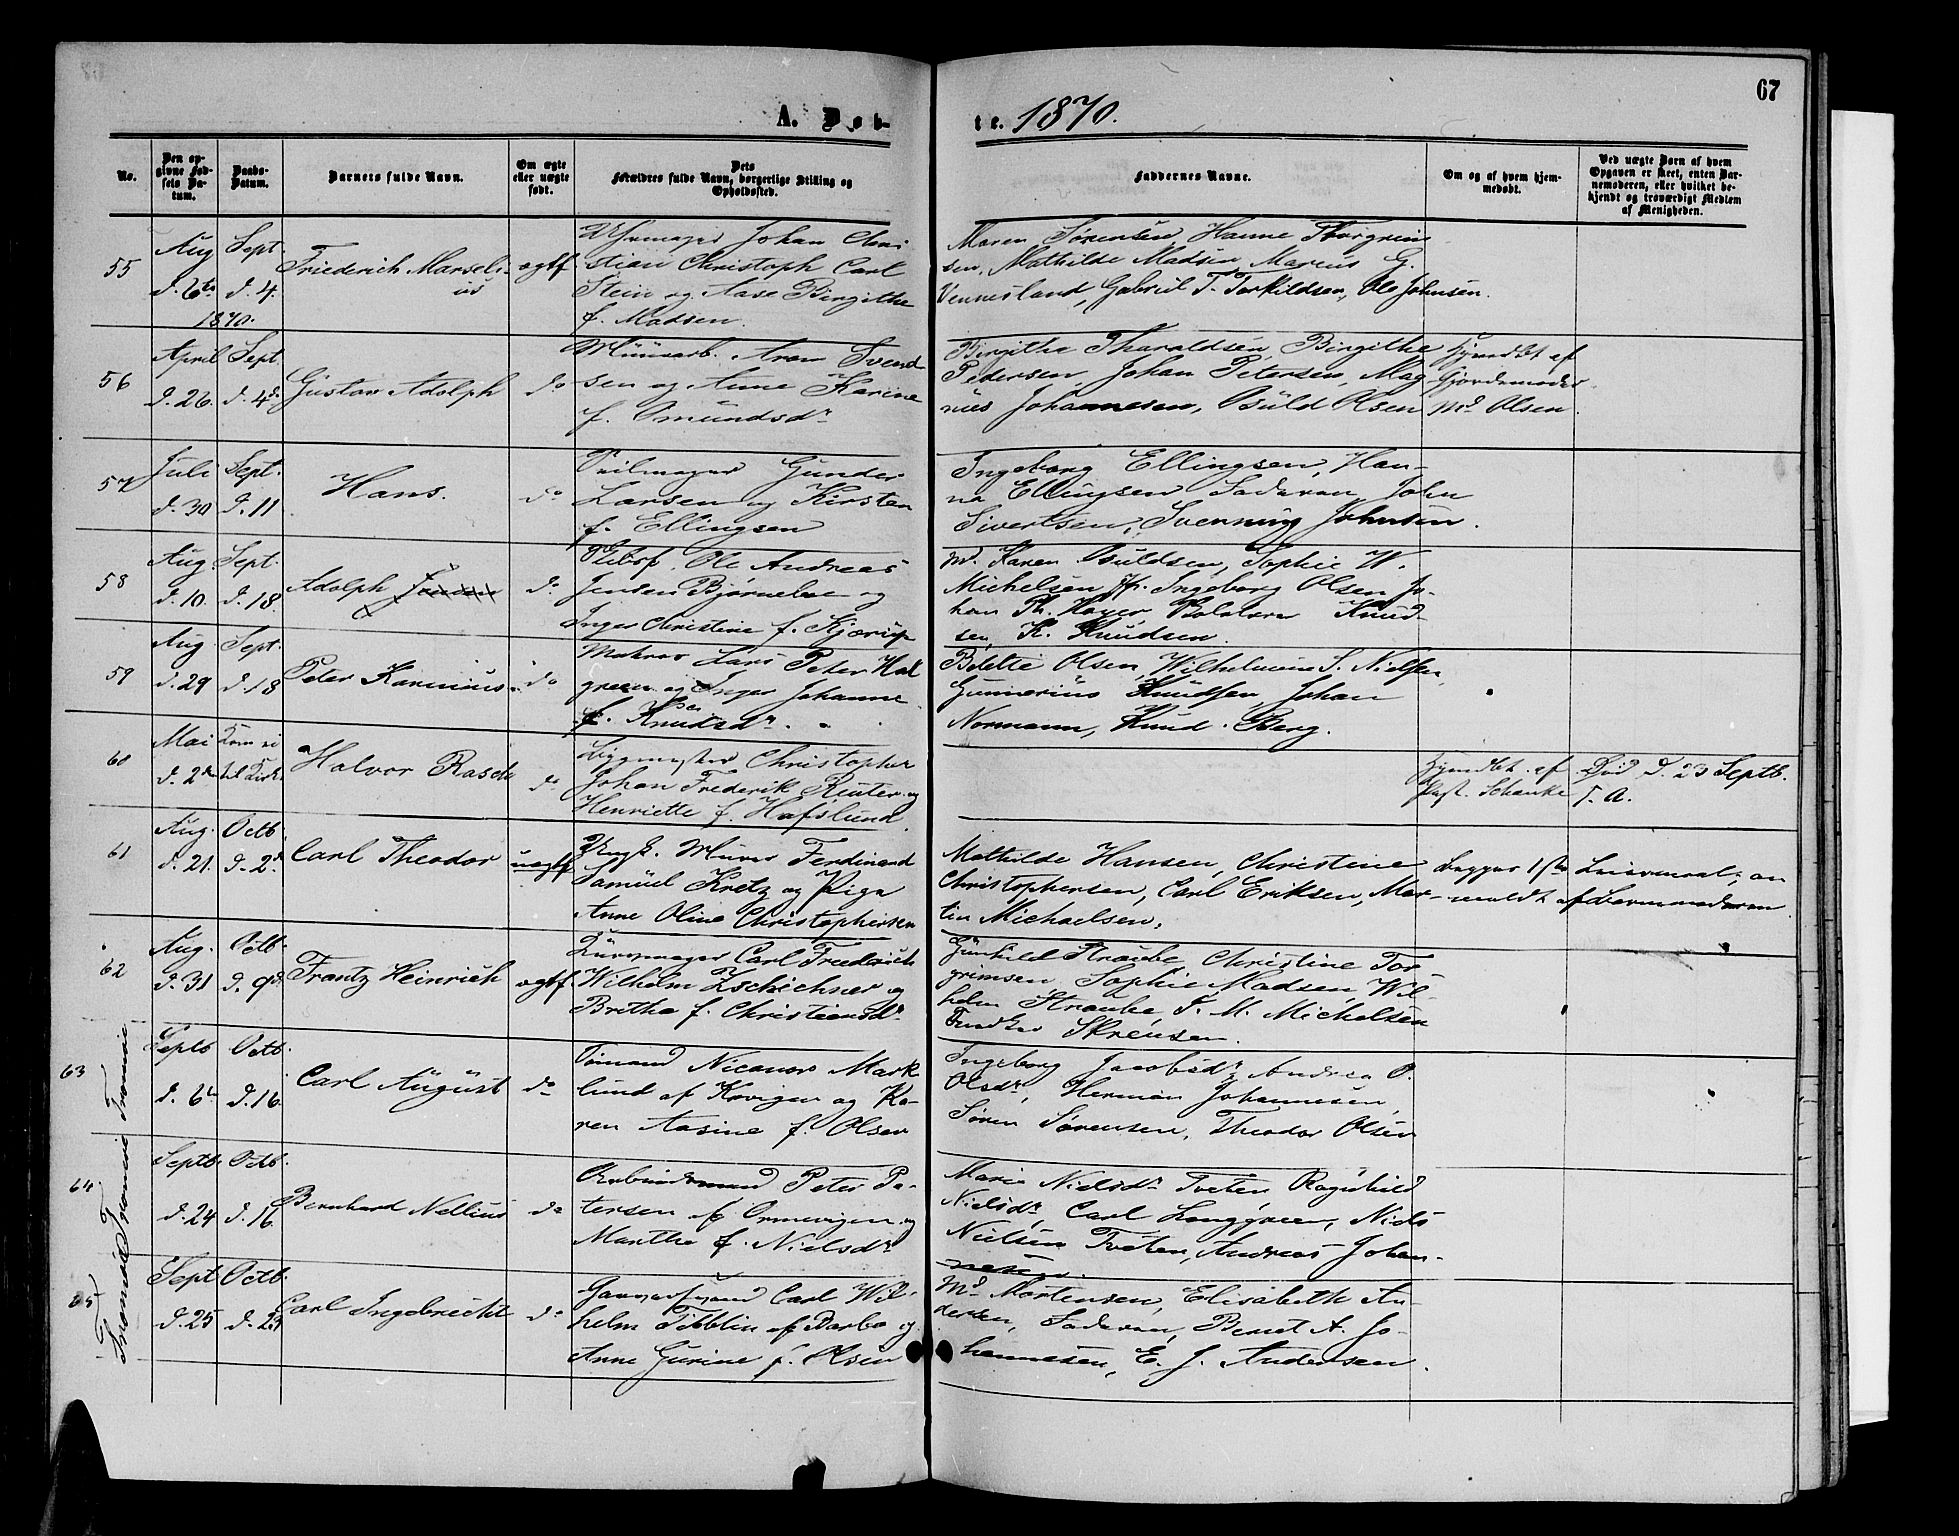 67
A. Døb-
te. 1870.
No.
Den op-
givne Fød-
sels Da-
tum.
Daabs-
Datum.
Barnets fulde Navn.
Om ægte
eller uægte
født.
Dets
Forældres fulde Navn, borgerlige Stilling og
Opholdssted.
Faddernes Navne.
Om og af hvem hjem-
medøbt.
Ved uægte Børn af hvem
Opgaven er skeet, enten Bar-
nemoderen, eller hvilket be-
kjendt og troværdigt Medlem
af Menigheden.
55
Aug
d. 6te
1870.
Sept.
d. 4.
Friederich Marseli-
us
ægtf.
Uhrmager Johan Chri
stian Christoph Carl
Stein og Aase Birgithe
f. Madsen.
Maren Sørensen Hanne Thorgrim
sen, Mathilde Madsen Marcus G.
Vennesland, Gabriel T. Torkildsen, Ole Johnsen.
56
April
d. 26.
Sept
d. 4de
Gustav Adolph
do
Muurarb. Aron Svend
sen og Anne Karine
f. Omundsdr
Birgithe Tharaldsen, Birgithe
Pedersen, Johan Petersen, Mag-
nus Johannesen, Osuld Olsen
Hjemdbt af
Gjordemoder
Md Olsen.
57
Juli
d. 30
Sept.
d. 11
Hans.
do
Seilmager Gunder
Larsen og Kirsten
f. Ellingsen
Ingeborg Ellingsen, Han-
na Ellingsen Faderen John
Sivertsen, Svenning Johnsen.
58
Aug.
d. 10.
Sept.
d. 18.
Adolph
do
Ole Andreas
Jensen Bjørneboe og
Inger Christine f. Kjørup
Md Karen Osuldsen, Sophie W.
Michelsen Jfr. Ingeborg Olsen Jo-
han Ph. Høyer Knud-
sen, K. Knudsen.
59
Aug.
d. 29
Sept.
d. 18
Peter Karenius.
do
Matros Lars Peter Hal
green og Inger Johanne
f. Knudsdr.
Bolette Olsen, Wilhelmine S. Nielsen,
Gunnerius Knudsen Johan
Normann, Knud Berg.
60
Mai
d. 2den
Kom ei
til Kirke
Halvor Rasch
do
Byggmester Christopher
Johan Frederik Reuter og
Henriette f. Hafslund.
Hjemdbt. af
Past. Schanke
Død d. 23 Septb.
s. A.
61
Aug.
d. 21.
Octb.
d. 2d
Carl Theodor
uægtf
Ungk. Murer Ferdinand
Samuel Kretz og Pige
Anne Oline Christophersen
Mathilde Hansen, Christine
Christophersen, Carl Eriksen, Mar-
tin Michaelsen.
begges 1ste Leiermaal; an
meldt af Barnemoderen
62
Aug.
d. 31
Octb.
d. 9d
Frantz Heinrich
ægtf
Kurvmager Carl Frederich
Wilhelm Zschichner og
Brithe f. Christiansdr
Gunhild Straube Christine Tor
grimsen, Sophie Madsen, Wil-
helm Straube, T. M. Michelsen
Sørensen.
63
Septb
d. 6te
Octb.
d. 16.
Carl August
do
Sømand Nicanor Mark
lund af Kovigen og Ka-
ren Aasine f. Olsen
Ingeborg Jacobsdr, Andrea O.
Olsdr, Herman Johannesen
Søren Sørensen, Theodor Olsen
Tromøe
64
Septb.
d. 24
Octb.
d. 16.
Bernhard Nellius
do
Arbeidsmand Peter Pe-
tersen af Ormevigen og
Marthe f. Nielsdr
Marie Nielsdr Tveten Ragnhild
Nielsdr, Carl Lenggreen, Niels
Nielsen Tveten, Andreas Johan-
nesen.
Tromøe
65
Sept
d. 25
Octb.
d. 23
Carl Ingebrecht
do
Garversvend Carl Wil-
helm Tibblin af Barbo og
Anne Gurine f. Olsen
Md Mortensen, Elisabeth An-
dersen, Faderen, Bernt A. Jo-
hannesen, E. J. Andersen.
Tromøe